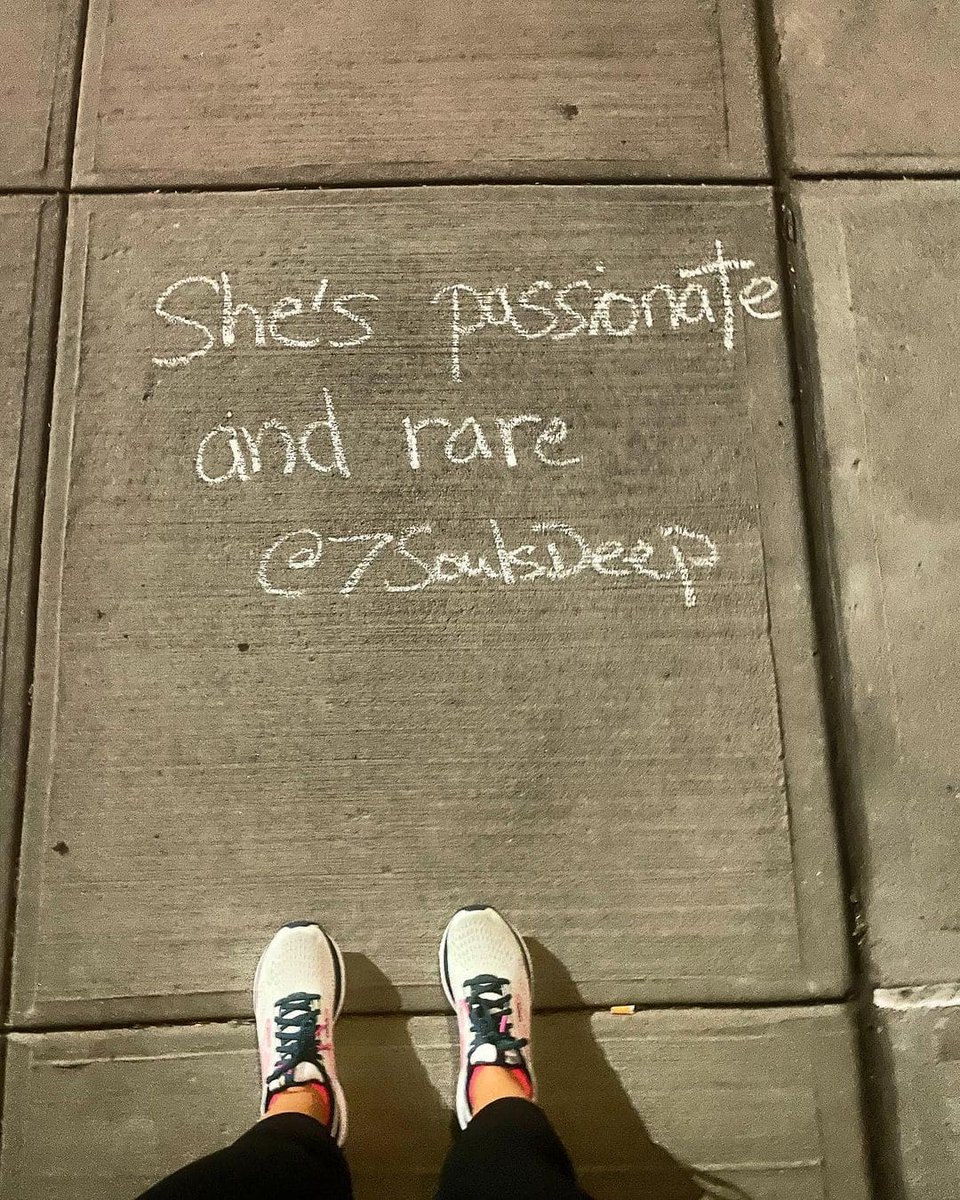 She's passionate
and rare
@7SoulsDeep